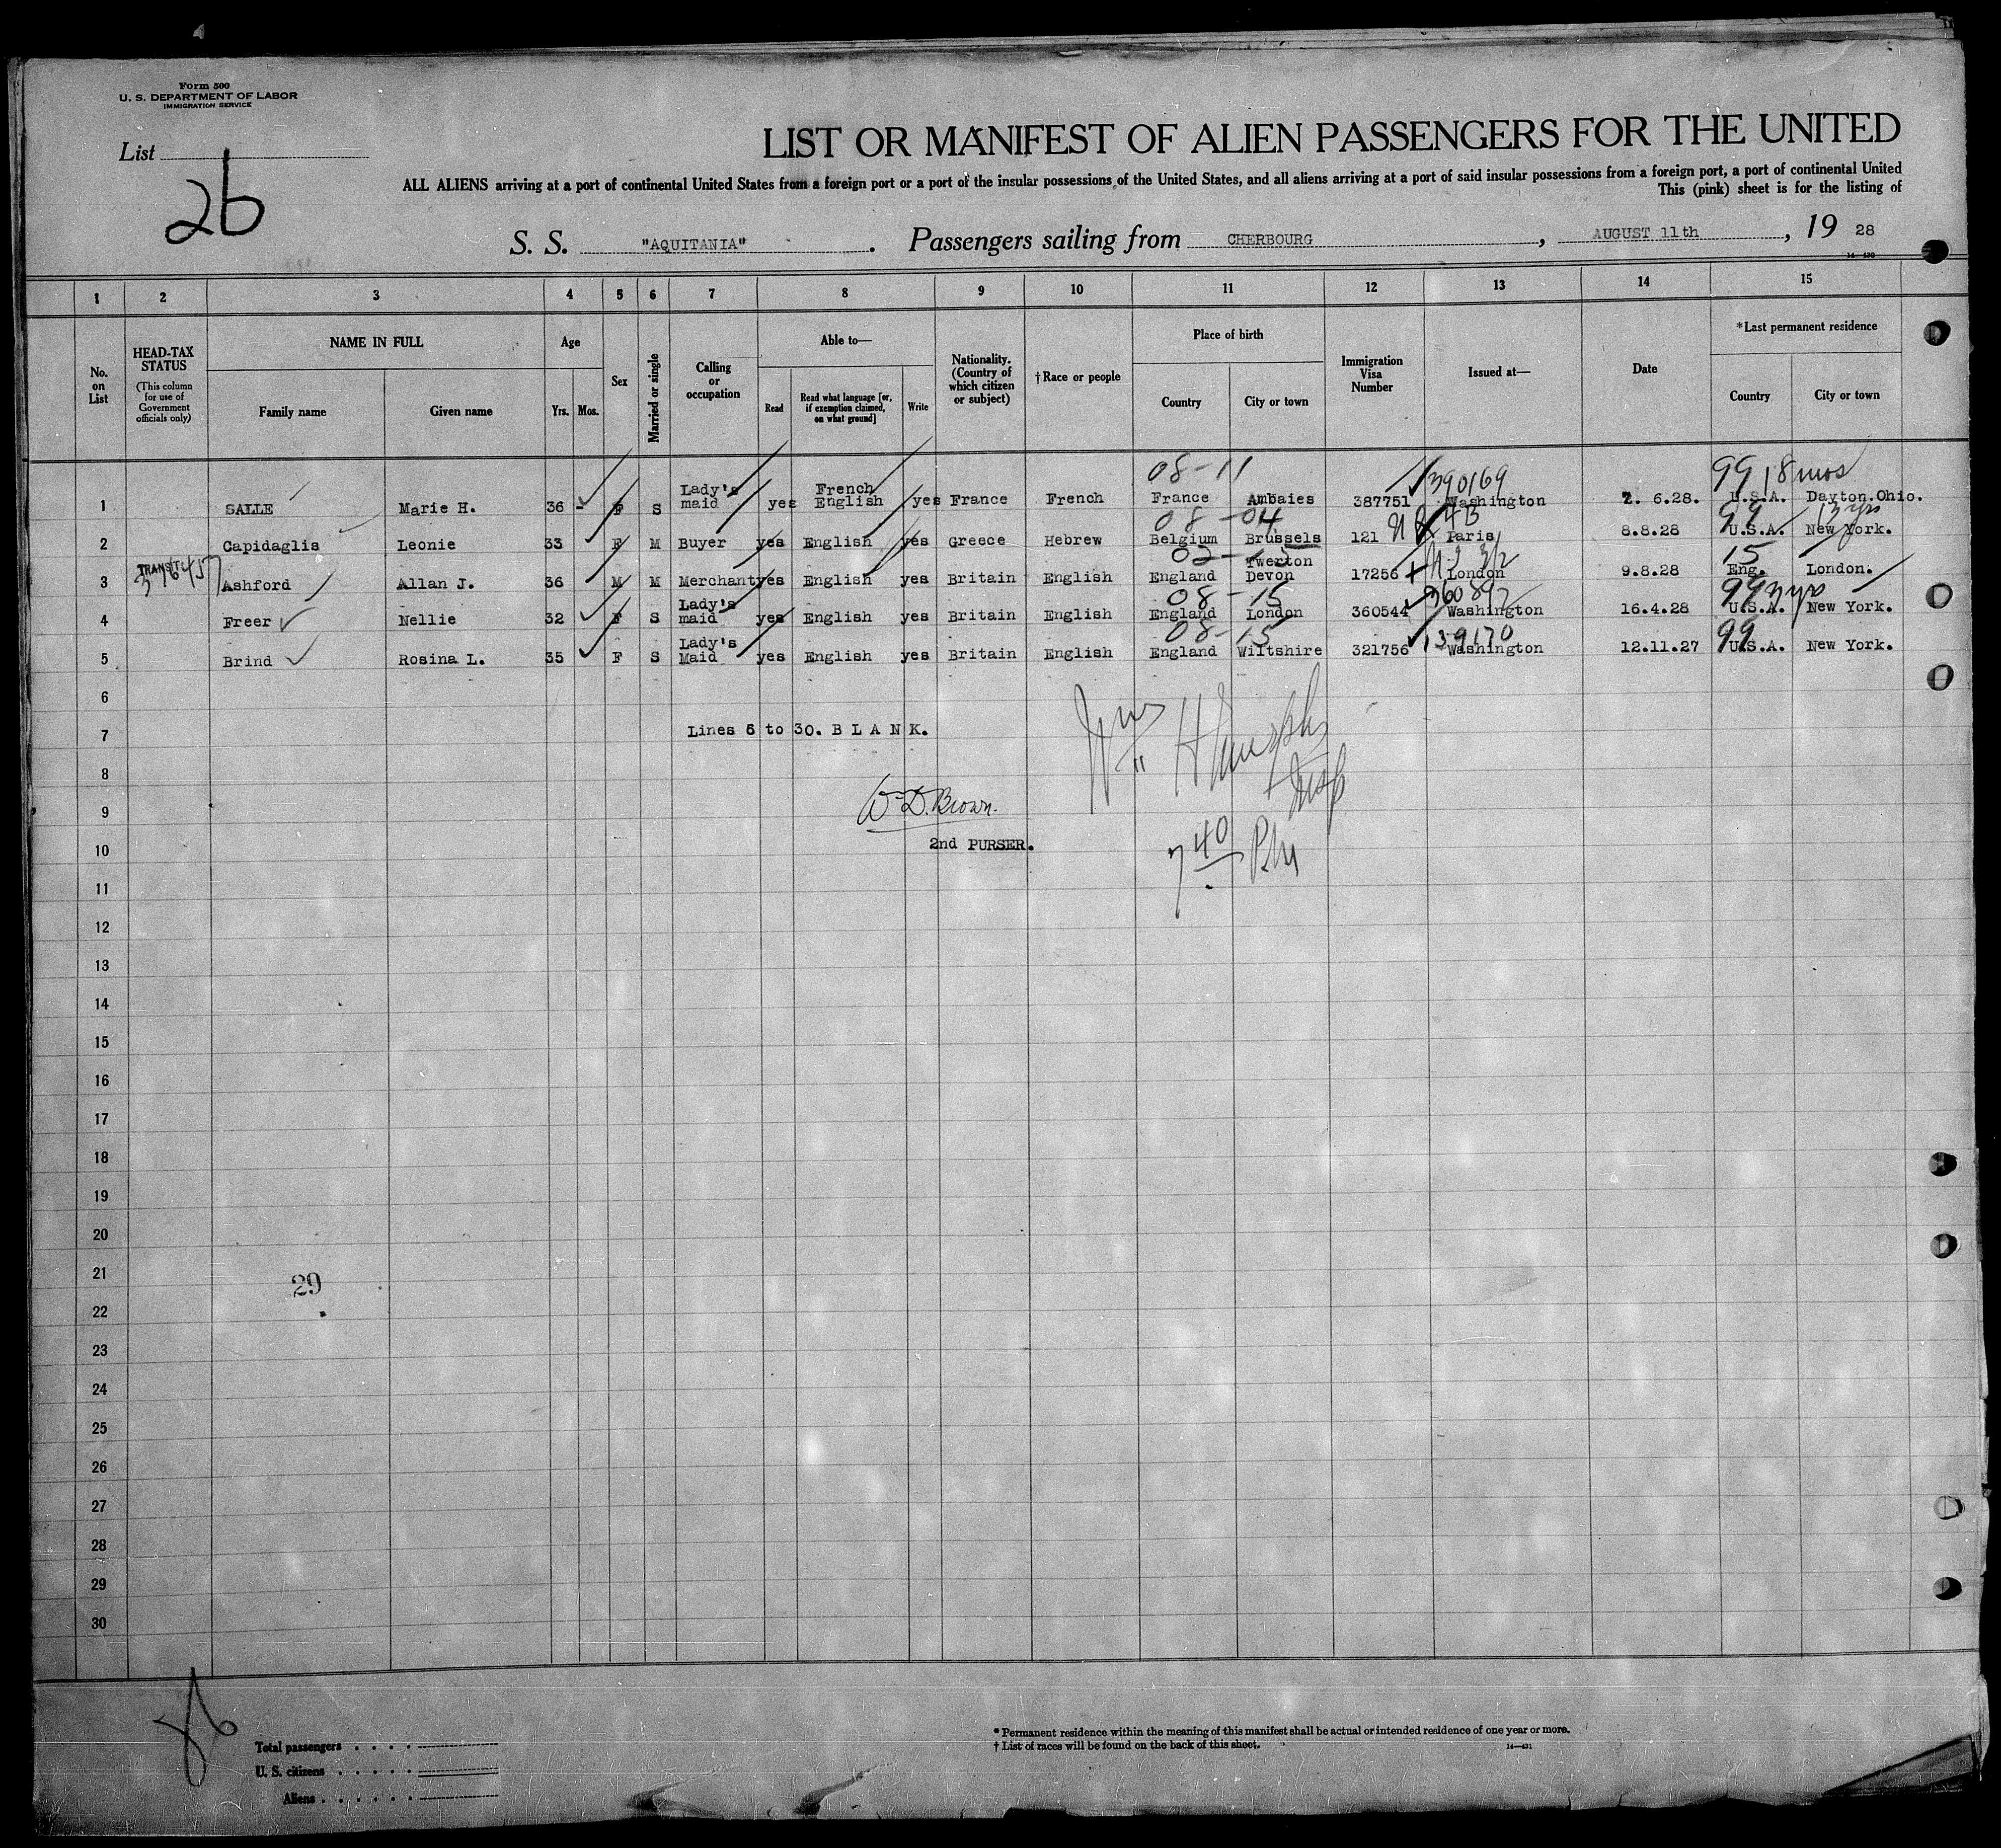 Form 500
U. S. DEPARTMENT OF LABOR
IMMIGRATION SERVICE
List
26
LIST OR MANIFEST OF ALIEN PASSENGERS FOR THE UNITED
ALL ALIENS arriving at a port of continental United States from a foreign port or a port of the insular possessions of the United States, and all aliens arriving at a port of said insular possessions from a foreign port, a port of continental United
This (pink) sheet is for the listing of
S. S. "AQUITANIA". Passengers sailing from CHERBOURG, AUGUST 11th, 19 28
1 2 3 4 5 6 7 8 9 10 11 12 13 14 15
No. on List
HEAD-TAX STATUS (This column for use of Government officials only)
NAME IN FULL
Family name Given name
Age
Yrs. Mos.
Sex
Married or single
Calling or occupation
Able to—
Read Read what language [or, if exemption claimed, on what ground] Write
Nationality. (Country of which citizen or subject)
†Race or people
Place of birth
Country City or town
Immigration Visa Number
Issued at—
Date
*Last permanent residence
Country City or town
08-11 390169 99 18 mos
1 SALLE Marie H. 36 - F S Lady's maid yes French English yes France French France Ambaies 387751 Washington 2. 6.28. U.S.A. Dayton.Ohio.
08-04 99 13 yrs
2 Capidaglis Leonie 33 F M Buyer yes English yes Greece Hebrew Belgium Brussels 121 Paris 8.8.28 U.S.A. New York.
TRANSIT 02-15 15
3 Ashford Allan J. 36 M M Merchant yes English yes Britain English England Twerton Devon 17256 London 9.8.28 Eng. London.
08-15 99 3 yrs
4 Freer Nellie 32 F S Lady's maid yes English yes Britain English England London 360544 Washington 16.4.28 U.S.A. New York.
08-15 139170 99
5 Brind Rosina L. 35 F S Lady's Maid yes English yes Britain English England Wiltshire 321756 Washington 12.11.27 U.S.A. New York.
6
7 Lines 6 to 30. B L A N K.
8
9 Wm D. Brown.
10 2nd PURSER. 7 40 P.M
11
12
13
14
15
16
17
18
19
20
21
29
22
23
24
25
26
27
28
29
30
Total passengers
U. S. citizens
Aliens
* Permanent residence within the meaning of this manifest shall be actual or intended residence of one year or more.
† List of races will be found on the back of this sheet.
14—431